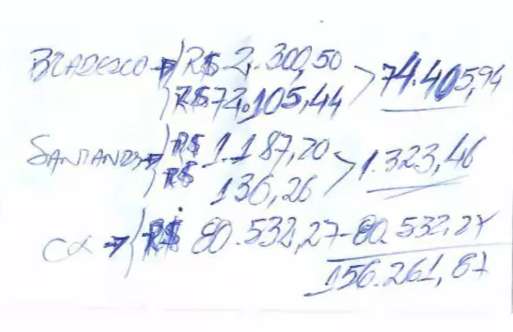 BRADESCO → R$ 2.300,50
R$ 72.105,44 > 74.405,94
SANTANDER → R$ 1.187,20
R$ 136,26 > 1.323,46
CX → R$ 80.532,27 - 80.532,27
156.261,67